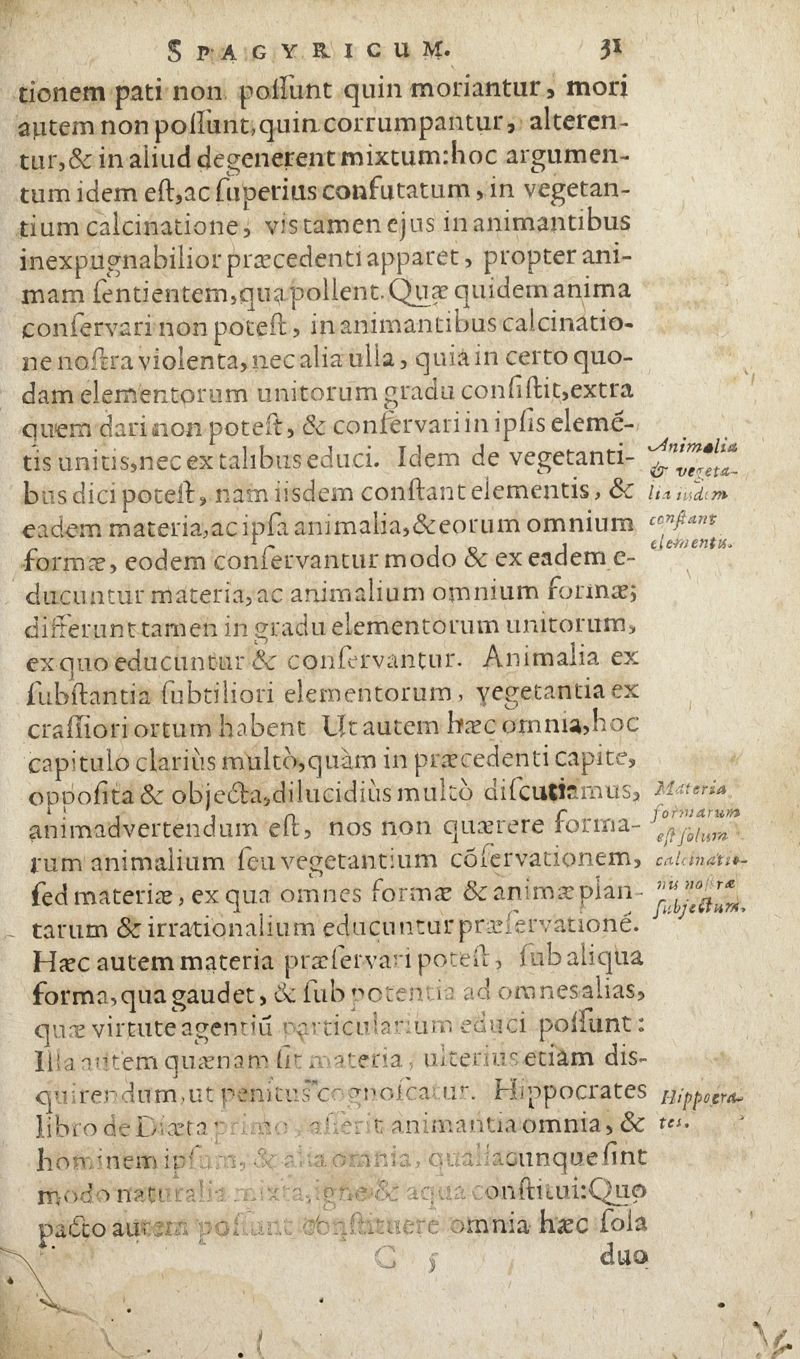 SPAGYRICUM. 31
tionem pati non possunt quin moriantur, mori
autem non possunt, quin corrumpantur, alteren-
tur, & in aliud degenerent mixtum: hoc argumen-
tum idem est, ac superius confutatum, in vegetan-
tium calcinatione, vis tamen ejus in animantibus
inexpugnabilior præcedenti apparet, propter ani-
mam sentientem, qua pollent. Quæ quidem anima
conservari non potest, in animantibus calcinatio-
ne nostra violenta, nec alia ulla, quia in certo quo-
dam elementorum unitorum gradu consistit, extra
quem dari non potest, & conservari in ipsis elemē-
tis unitis, nec ex talibus educi. Idem de vegetanti-
bus dici potest, nam iisdem constant elementis, &
eadem materia, ac ipsa animalia, & eorum omnium
formæ, eodem conservantur modo & ex eadem e-
ducuntur materia, ac animalium omnium formæ;
differunt tamen in gradu elementorum unitorum,
ex quo educuntur & conservantur. Animalia ex
substantia subtiliori elementorum, vegetantia ex
crassiori ortum habent Ut autem hæc omnia, hoc
capitulo clariùs multò, quàm in præcedenti capite,
opposita & objecta, dilucidiùs multò discutiamus,
animadvertendum est, nos non quærere forma-
rum animalium seu vegetantium cōservationem,
sed materiæ, ex qua omnes formæ & animæ plan-
tarum & irrationalium educuntur præservationē.
Hæc autem materia præservari potest, sub aliqua
forma, qua gaudet, & sub potentia ad omnes alias,
quæ virtute agentiū particularium educi possunt:
Illa autem quænam sit materia, ulterius etiam dis-
quirendum, ut penitus cognoscatur. Hippocrates
libro de Diæta primo, asserit animantia omnia, &
hominem ipsum, & alia omnia, qualiacunque sint
modo naturalia mixta, igne & aqua constitui: Quo
pacto autem possunt constituere omnia hæc sola
G 5 duo
Animalia
& vegeta-
lia iisdem
constant
elementis.
Materia
formarum
est solum
calcinatio-
nis nostræ
subjectum.
Hippocra-
tes.